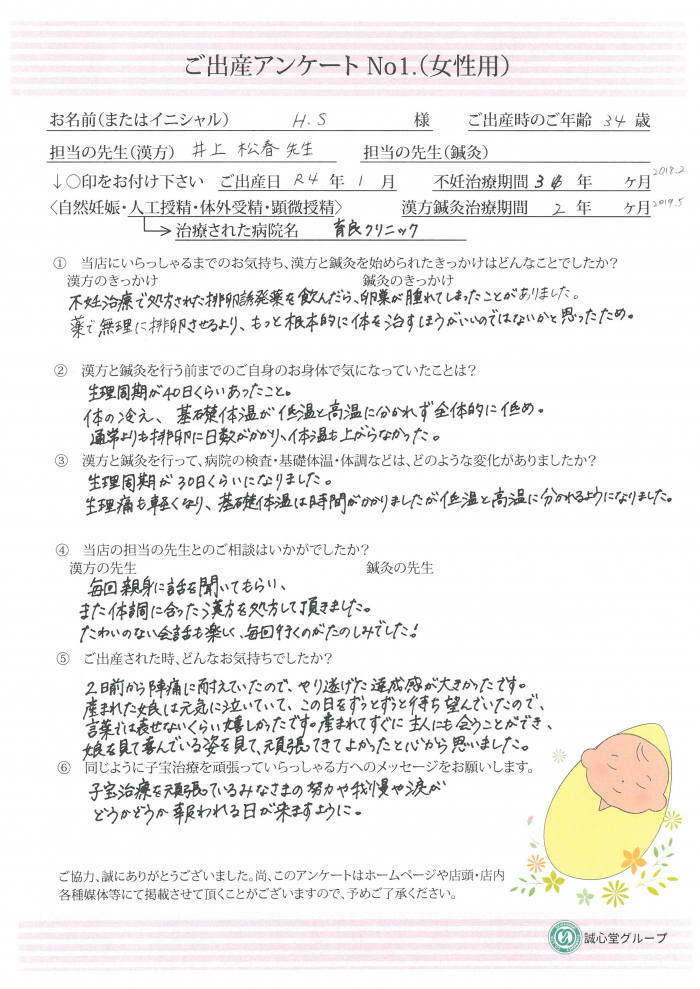 ご出産アンケート No1.(女性用)
お名前(またはイニシャル) H.S 様 ご出産時のご年齢 34 歳
担当の先生(漢方) 井上 松春 先生 担当の先生(鍼灸)
↓○印をお付け下さい ご出産日 R4 年 1 月 不妊治療期間 3 年 ヶ月 2018.2
〈自然妊娠・人工授精・体外受精・顕微授精〉 漢方鍼灸治療期間 2 年 ヶ月 2019.5
治療された病院名 育良クリニック
① 当店にいらっしゃるまでのお気持ち、漢方と鍼灸を始められたきっかけはどんなことでしたか?
漢方のきっかけ 鍼灸のきっかけ
不妊治療で処方された排卵誘発薬を飲んだら、卵巣が腫れてしまったことがありました。
薬で無理に排卵させるより、もっと根本的に体を治すほうがいいのではないかと思ったため。
② 漢方と鍼灸を行う前までのご自身のお身体で気になっていたことは?
生理周期が40日くらいあったこと。
体の冷え、基礎体温が低温と高温に分かれず全体的に低め。
通常よりも排卵に日数がかかり、体温も上がらなかった。
③ 漢方と鍼灸を行って、病院の検査・基礎体温・体調などは、どのような変化がありましたか?
生理周期が30日くらいになりました。
生理痛も軽くなり、基礎体温は時間がかかりましたが低温と高温に分かれるようになりました。
④ 当店の担当の先生とのご相談はいかがでしたか?
漢方の先生 鍼灸の先生
毎回親身に話を聞いてもらい、
また体調に合った漢方を処方して頂きました。
たわいのない会話も楽しく、毎回行くのがたのしみでした!
⑤ ご出産された時、どんなお気持ちでしたか?
2日前から陣痛に耐えていたので、やり遂げた達成感が大きかったです。
産まれた娘は元気に泣いていて、この日をずっとずっと待ち望んでいたので、
言葉では表せないくらい嬉しかったです。産まれてすぐに主人にも会うことができ、
娘を見て喜んでいる姿を見て、頑張ってきてよかったと心から思いました。
⑥ 同じように子宝治療を頑張っていらっしゃる方へのメッセージをお願いします。
子宝治療を頑張っているみなさまの努力や我慢や涙が
どうかどうか報われる日が来ますように。
ご協力、誠にありがとうございました。尚、このアンケートはホームページや店頭・店内
各種媒体等にて掲載させて頂くことがございますので、予めご了承ください。
誠心堂グループ